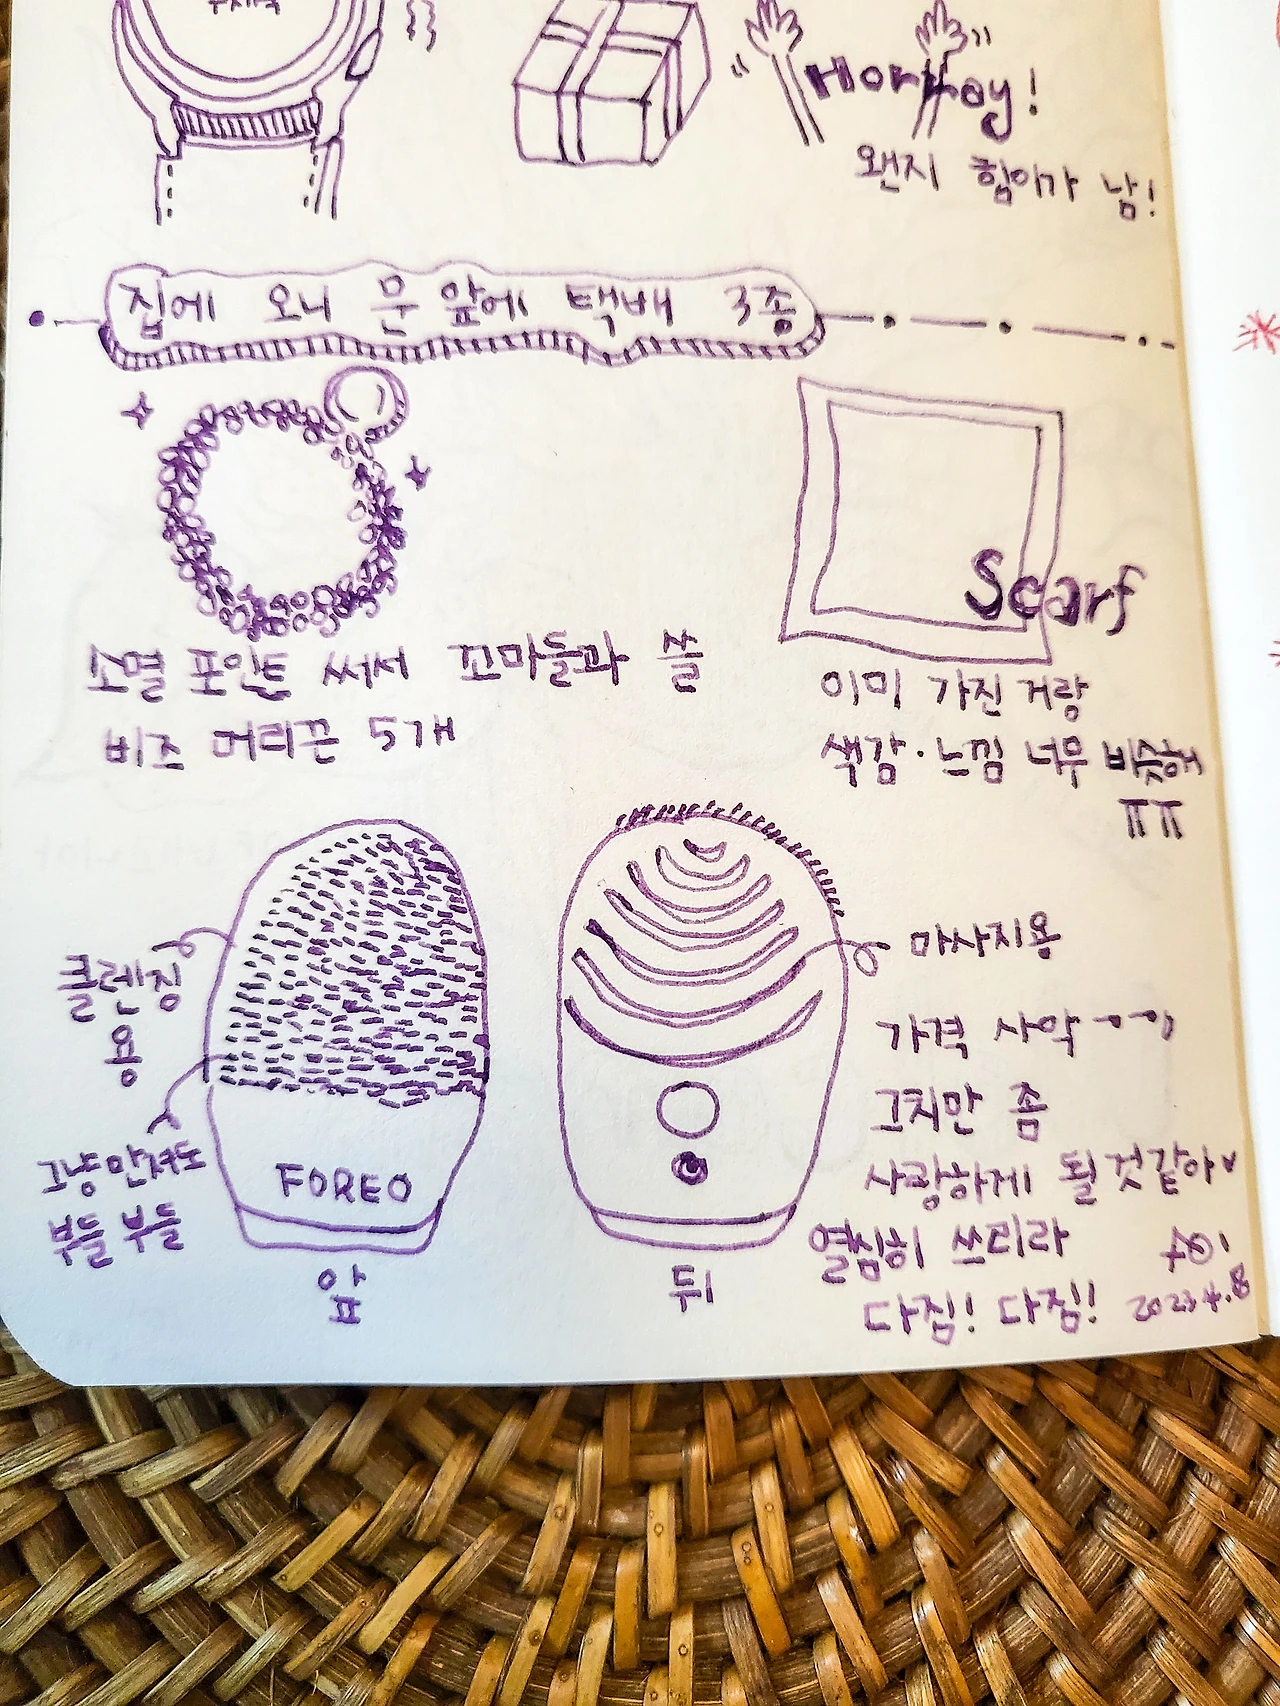 Horray!
왠지 힘이가 남!
집에 오니 문 앞에 택배 3종
소멸 포인트 써서 꼬마들과 쓸
비즈 머리끈 5개
Scarf
이미 가진 거랑
색감·느낌 너무 비슷해
ㅠㅠ
클렌징
용
그냥 만져도
부들 부들
FOREO
앞
뒤
마사지용
가격 사악
그치만 좀
사랑하게 될 것 같아
열심히 쓰리라
다짐! 다짐!
2023.4.8